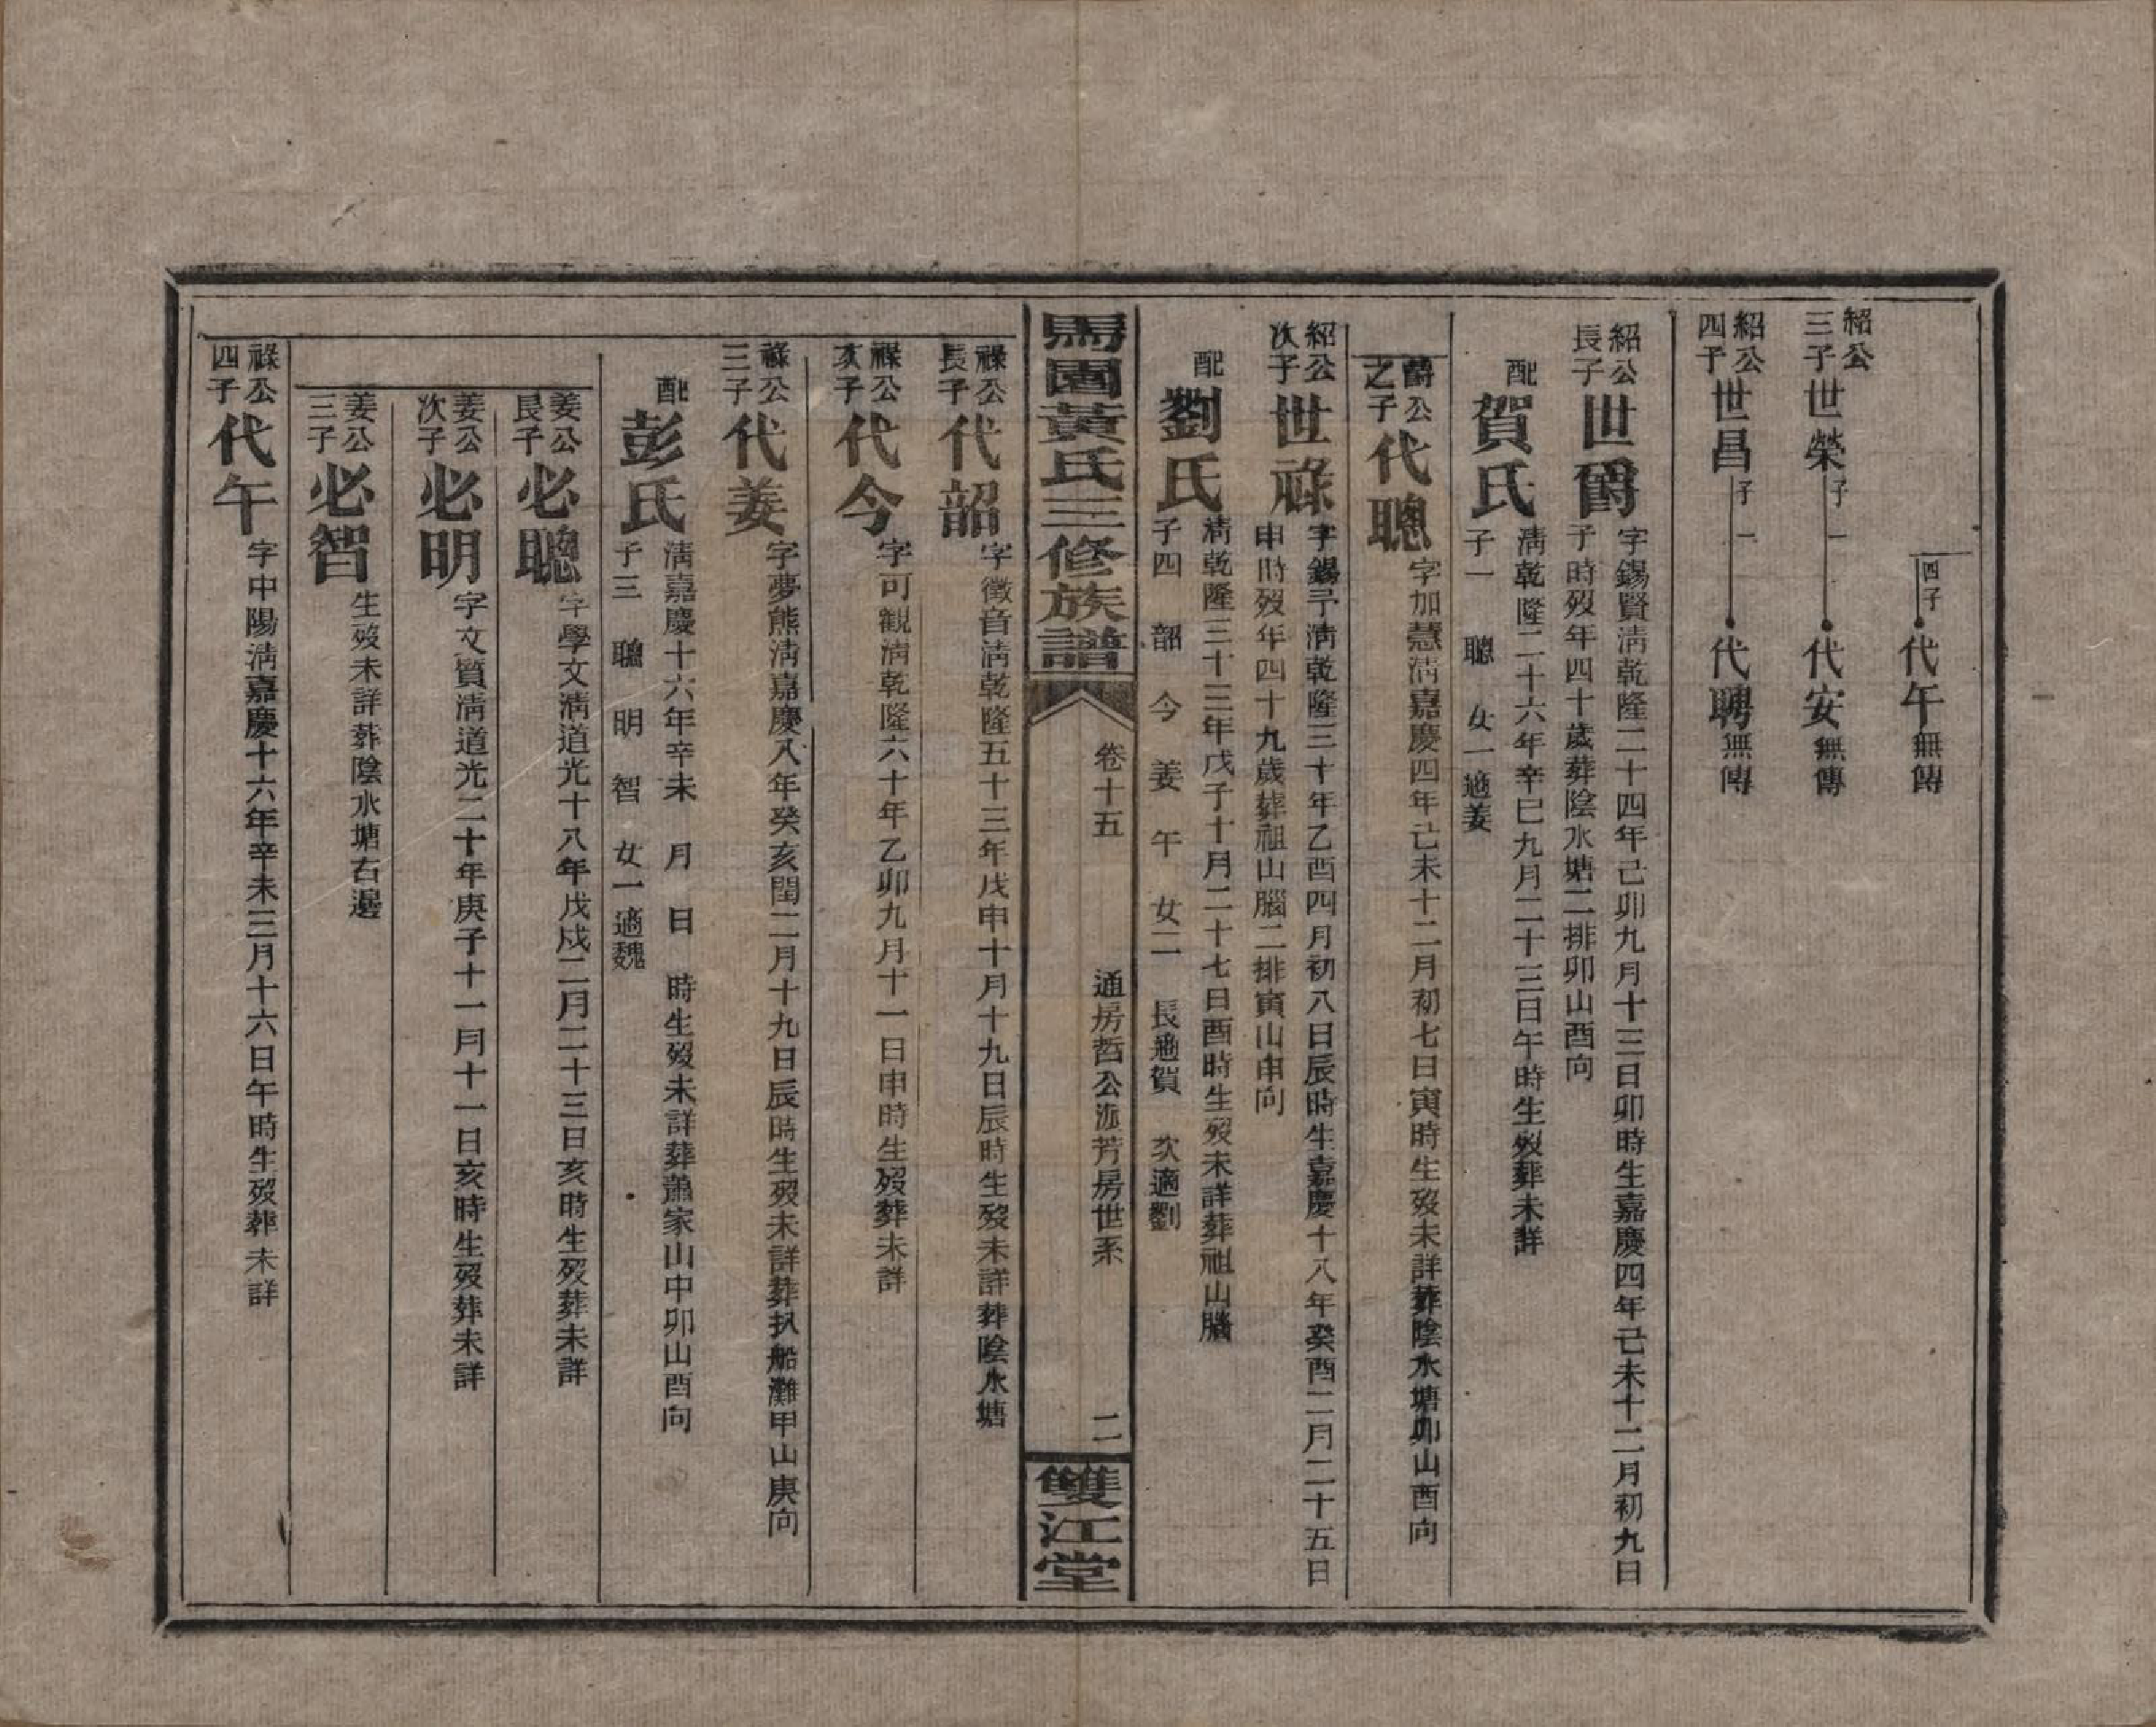 四子 代午 無傳
紹公三子 世榮 子一 代安 無傳
紹公四子 世昌 子一 代聘 無傳
紹公長子 世爵 字錫賢清乾隆二十四年己卯九月十三日卯時生嘉慶四年己未十二月初九日
子時歿年四十歲葬陰水塘二排卯山酉向
配 賀氏 清乾隆二十六年辛巳九月二十三日午時生歿葬未詳
子一 聰 女一適姜
爵公之子 代聰 字加慧清嘉慶四年己未十二月初七日寅時生歿未詳葬陰水塘卯山酉向
紹公次子 世祿 字錫予清乾隆三十年乙酉四月初八日辰時生嘉慶十八年癸酉二月二十五日
申時歿年四十九歲葬祖山腦二排寅山申向
配 劉氏 清乾隆三十三年戊子十月二十七日酉時生歿未詳葬祖山腦
子四 韶 今 姜 午 女二 長適賀 次適劉
馬園黃氏三修族譜 卷十五 通房哲公派芳房世系 二 雙江堂
祿公長子 代韶 字徵音清乾隆五十三年戊申十月十九日辰時生歿未詳葬陰水塘
祿公次子 代今 字可觀清乾隆六十年乙卯九月十一日申時生歿葬未詳
祿公三子 代姜 字夢熊清嘉慶八年癸亥閏二月十九日辰時生歿未詳葬扒船灘甲山庚向
配 彭氏 清嘉慶十六年辛未 月 日 時生歿未詳葬蕭家山中卯山酉向
子三 聰 明 智 女一適魏
姜公長子 必聰 字學文清道光十八年戊戌二月二十三日亥時生歿葬未詳
姜公次子 必明 字文質清道光二十年庚子十一月十一日亥時生歿葬未詳
姜公三子 必智 生歿未詳葬陰水塘右邊
祿公四子 代午 字中陽清嘉慶十六年辛未三月十六日午時生歿葬未詳